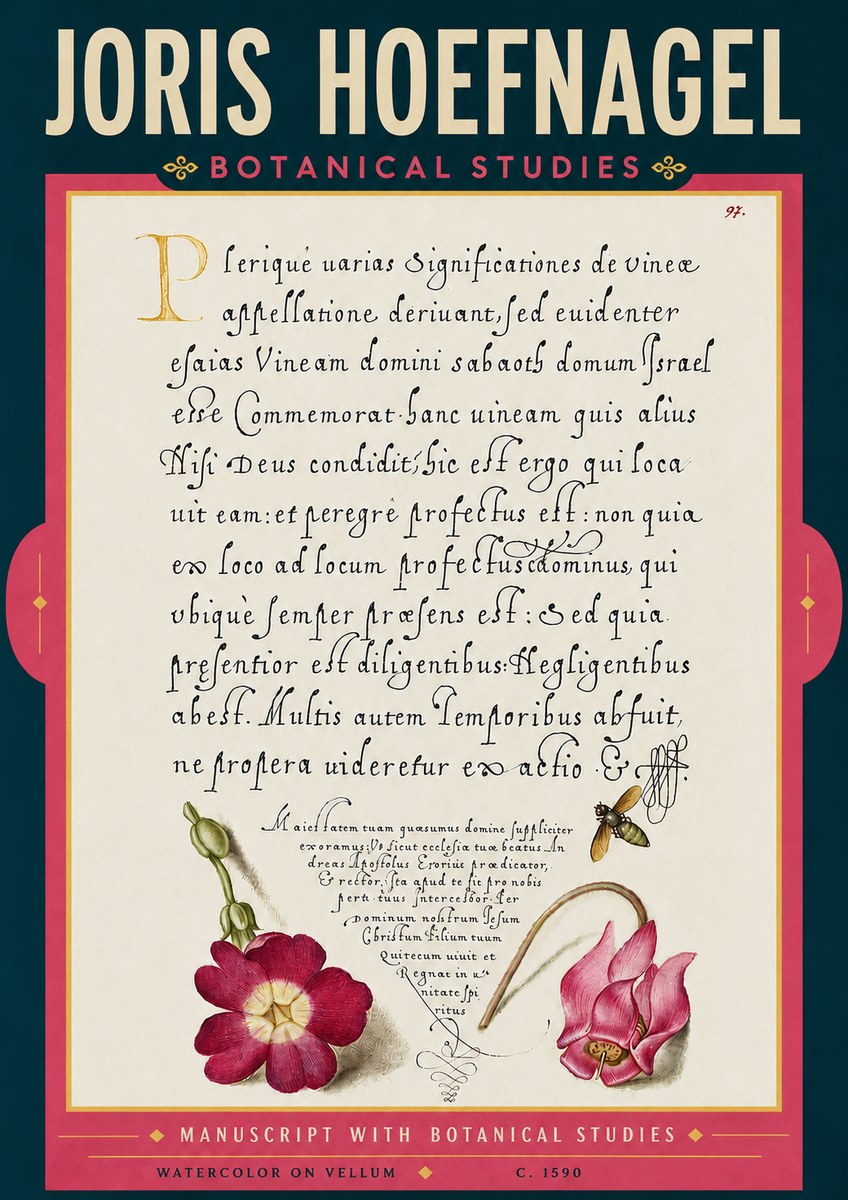 JORIS HOEFNAGEL
BOTANICAL STUDIES
97.
Plerique uarias Significationes de vineæ
appellatione deriuant, sed euidenter
esaias Vineam domini sabaoth domum Israel
esse Commemorat. hanc uineam quis alius
Nisi Deus condidit; hic est ergo qui loca
uit eam: et peregrè profectus est: non quia
ex loco ad locum profectus dominus, qui
vbiquè semper præsens est: Sed quia
pręsentior est diligentibus: Negligentibus
abest. Multis autem Temporibus abfuit,
ne propera uideretur exactio. &
Maiestatem tuam quæsumus domine suppliciter
exoramus: Vt sicut ecclesia tuæ beatus An
dreas Apostolus Extitit prædicator,
& rector, ita apud te sit pro nobis
perti tuus Intercessor. Per
Dominum nostrum Iesum
Christum Filium tuum
Qui tecum uiuit et
Regnat in u
nitate spi
ritus
MANUSCRIPT WITH BOTANICAL STUDIES
WATERCOLOR ON VELLUM C. 1590